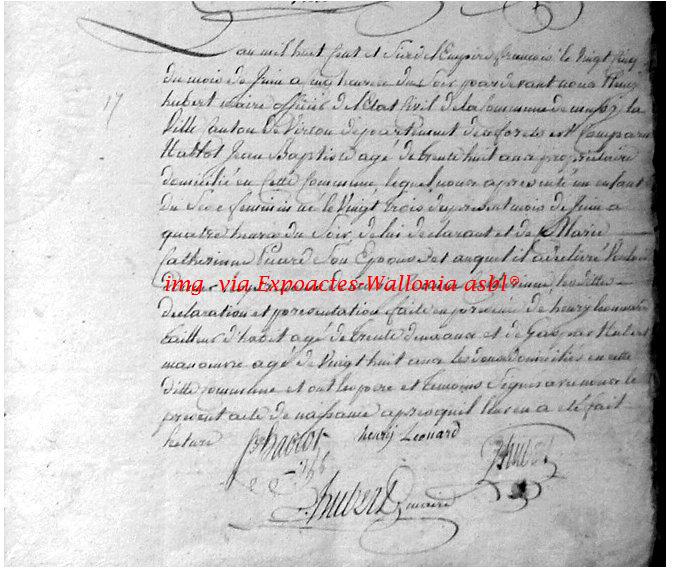 L'an mil huit cent et Sixe d'Empire françois le Vingt cinq
du mois de Juin a cinq heures du Soir pardevant nous
17
hubert maire officier de l'Etat Civil de la Commune de la
Ville Canton de Virton departement deforets est Comparu
Hablot Jean Baptiste agé de trente huit ans proprietaire
domicilié en cette Commune, lequel nous apresenté un enfant
du Sexe feminin né le Vingt trois du present mois de Juin a
quatre heures du Soir de lui declarant et de Marie
Catherinne Picard Son Epouse et auquel il a declaré Vouloir
img -via Expoactes-Wallonia asbl®
declaration et presentation faite en presence de henry Leonard
tailleur d'habet agé de trente deux ans et de Gaspar Hubert
manoeuvre agé de Vingt huit ans les deux Domiciliés en cette
ditte Commune et ont les pere et temoins Signés avec nous le
present acte de naissance apres qu'il leur en a été fait
lecture
henry Leonard
Jhubert
Hubert maire